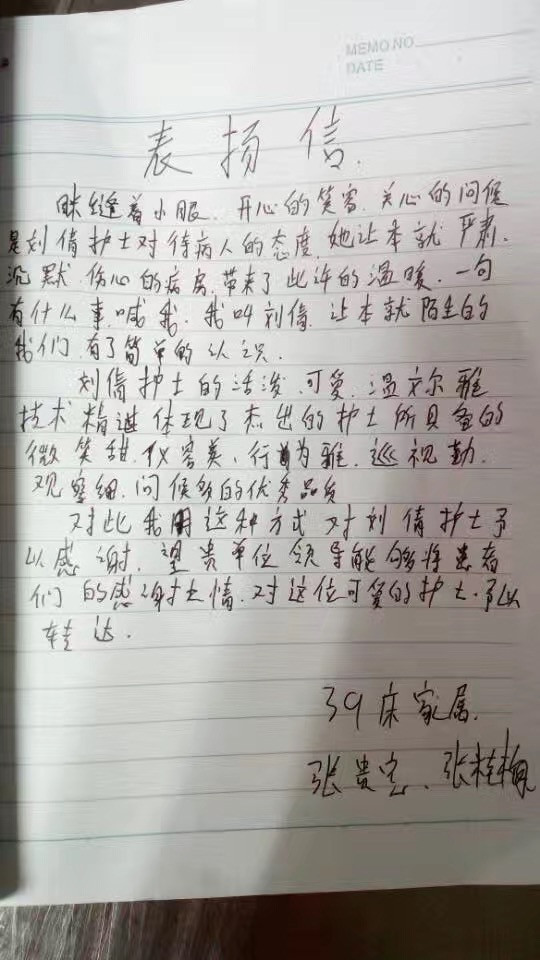 MEMO NO
DATE
表扬信.
眯缝着小眼、开心的笑容、关心的问候
是刘倩护士对待病人的态度,她让本就严肃、
沉默、伤心的病房,带来了些许的温暖、一句
有什么事,喊我,我叫刘倩,让本就陌生的
我们,有了简单的认识.
刘倩护士的活泼、可爱、温文尔雅
技术精进体现了杰出的护士所具备的
微笑甜、仪容美、行为雅、巡视勤、
观察细、问候多的优秀品质
对此我用这种方式对刘倩护士予
以感谢,望贵单位领导能够将患者
们的感谢之情,对这位可爱的护士,予以
转达.
39床家属.
张贵、张桂梅